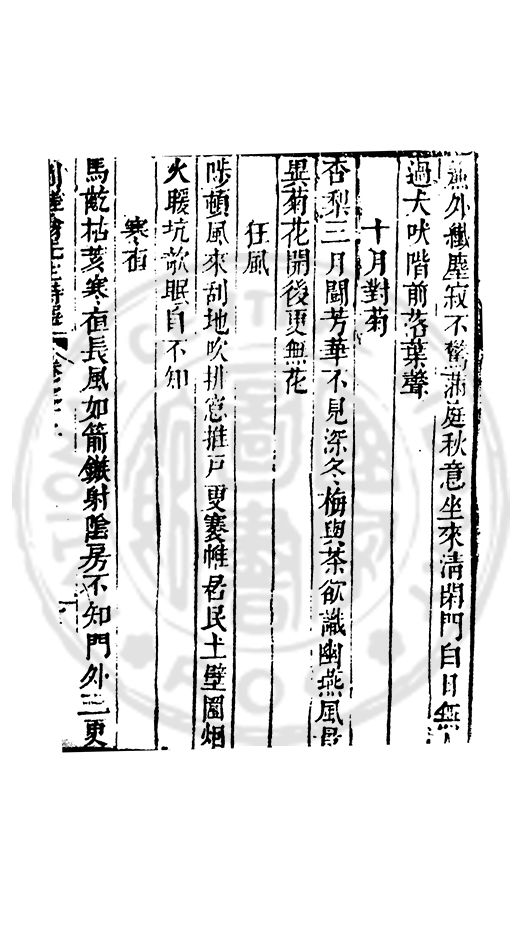 外纖塵寂不驚滿庭秋意坐來清閑門白日無人
過犬吠階前落葉聲
十月對菊
杏梨三月鬪芳華不見深冬梅與茶欲識幽燕風景
異菊花開後更無花
狂風
陟頓風來刮地吹排窓推戸更褰帷居民土壁圍烟
火暖坑欹眠自不知
寒夜
馬齕枯萁寒夜長風如箭鏃射陰房不知門外三更